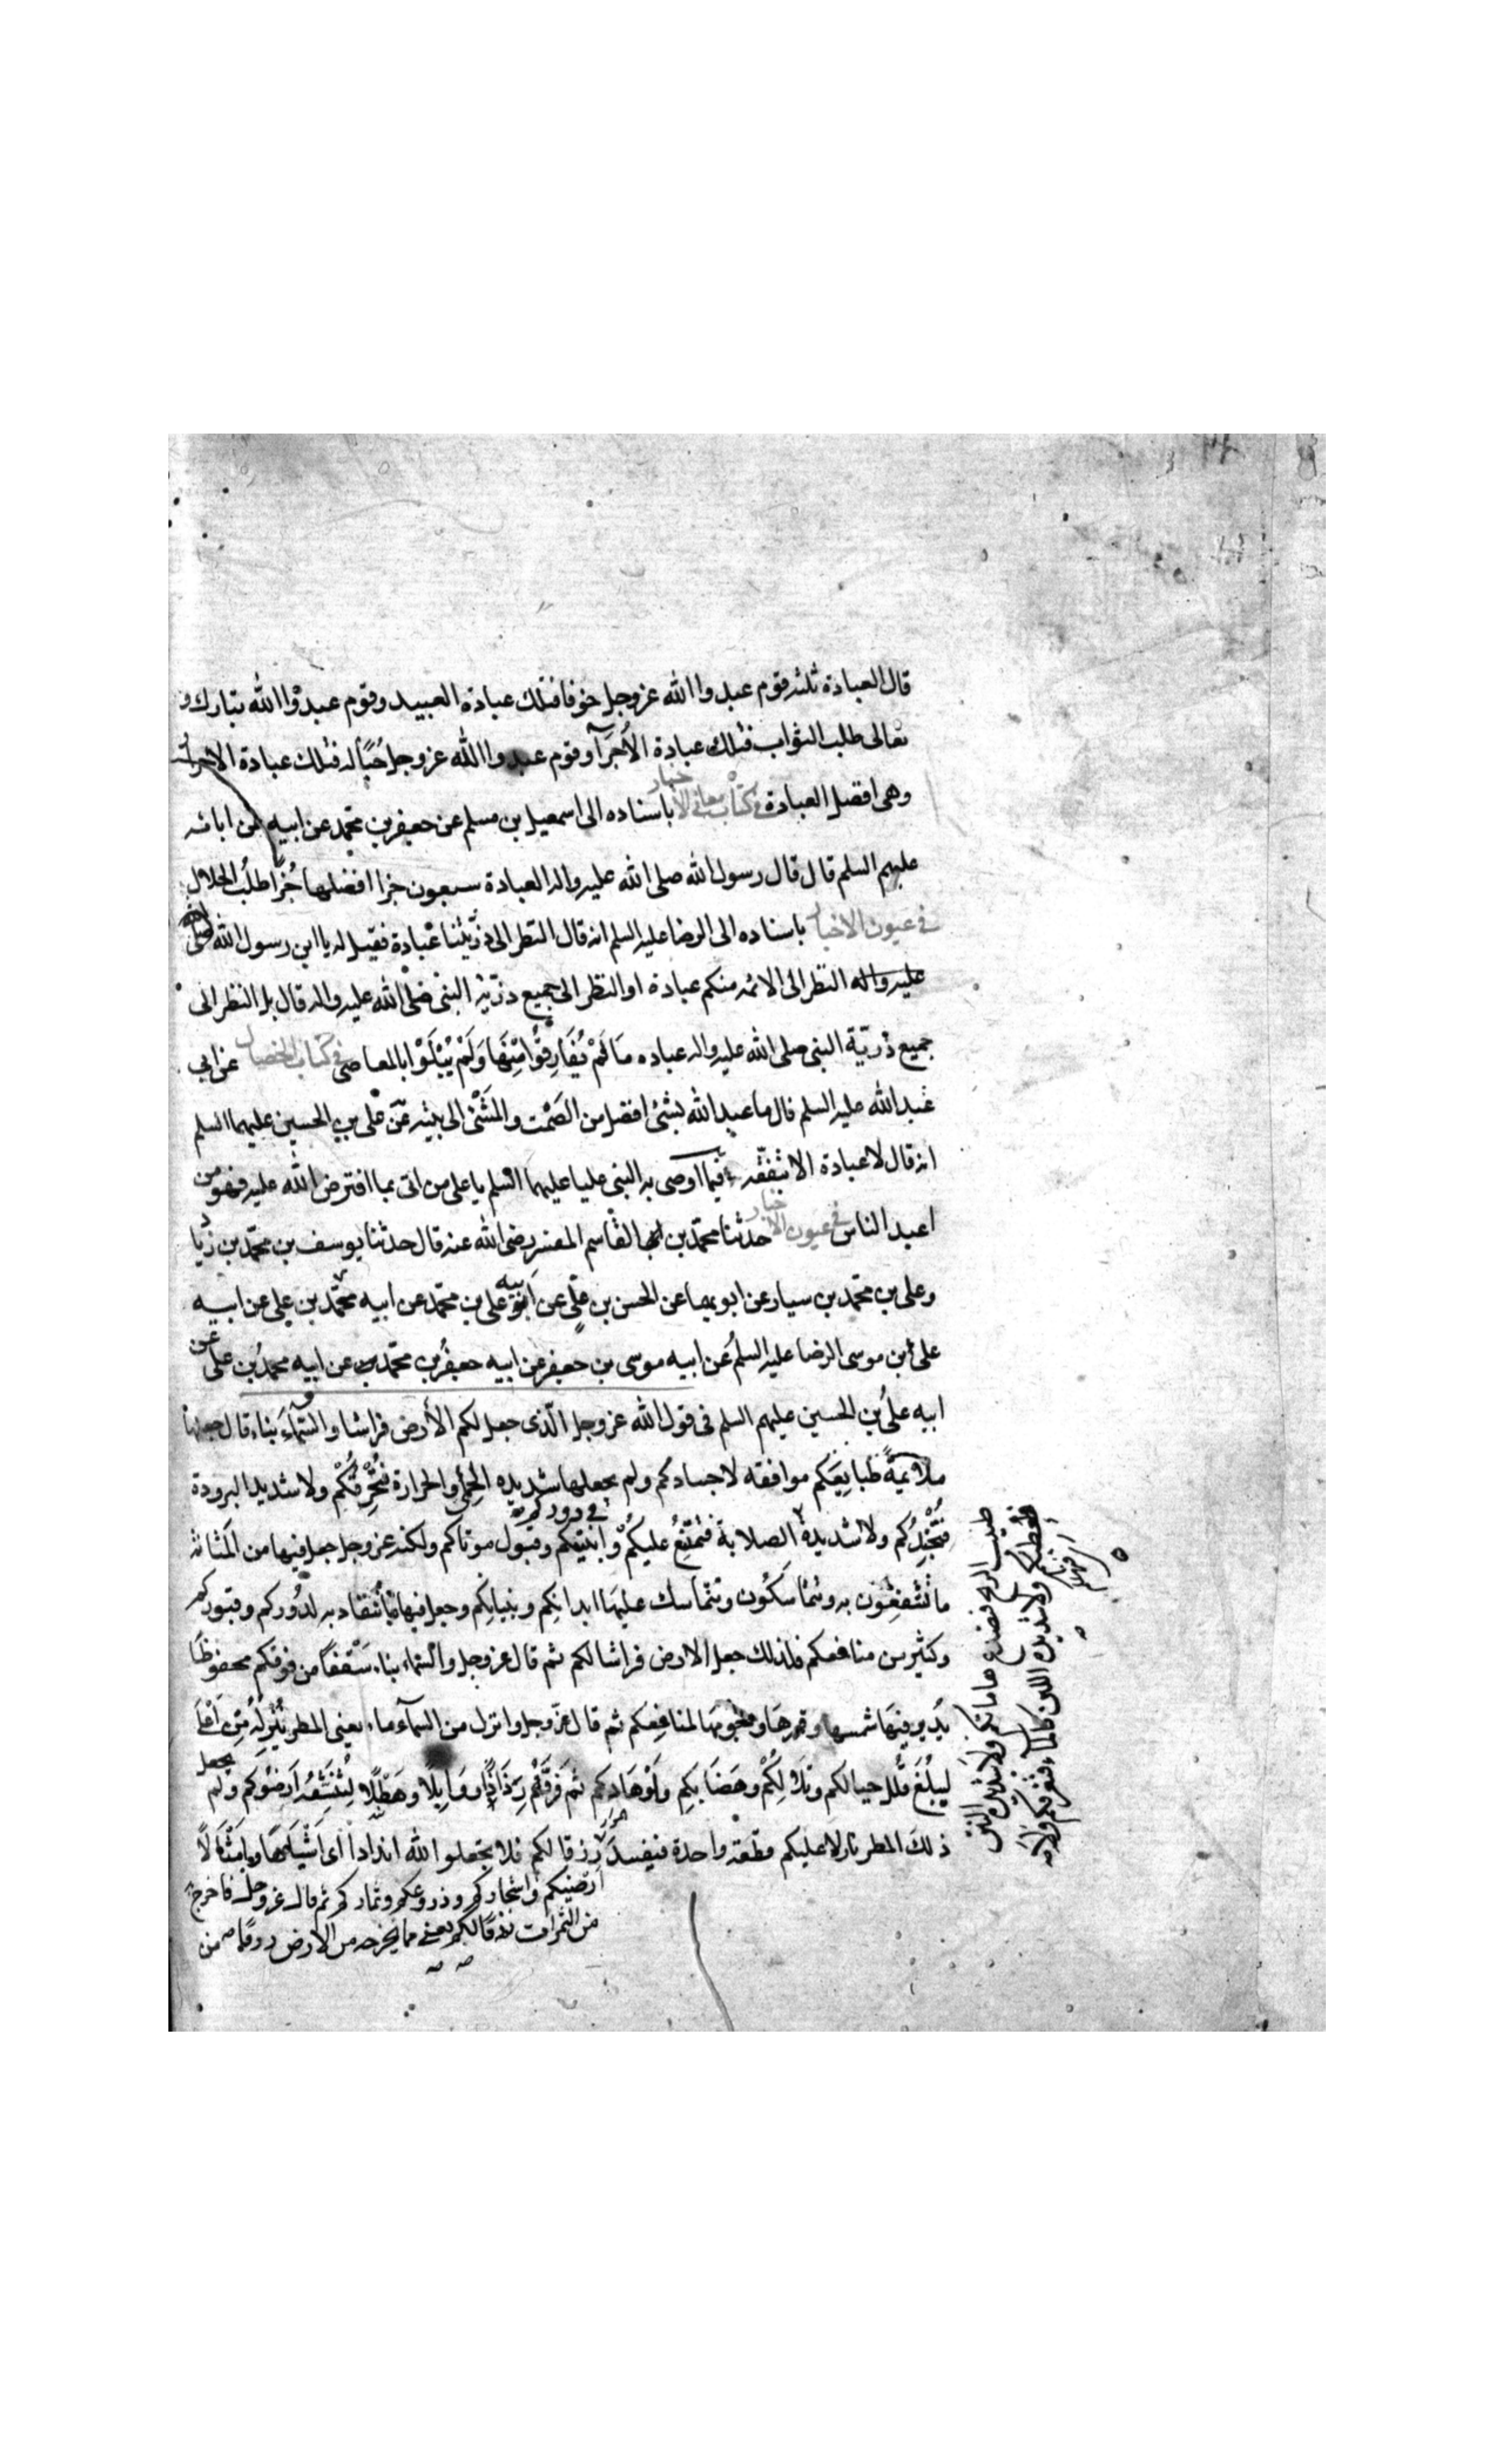 قال العبادة ثلثه قوم عبدوا الله عزوجل خوفا فتلك عبادة العبيد وقوم عبدوا الله تبارك و
تعالى طلب الثواب فتلك عبادة الأجرآ وقوم عبدوا الله عزوجل حُبّاً له فتلك عبادة الاحرار
وهى افضل العبادة فى كتاب معانى الاخبار باسناده الى اسمعيل بن مسلم عن جعفر بن محمد عن ابيه عن ابائه
عليهم السلم قال قال رسول الله صلى الله عليه واله العبادة سبعون جزا افضلها جُزاً طلبُ الحلال
فى عيون الاخبار باسناده الى الرضا عليه السلم انه قال النظر الى ذرّيّتنا عبادة فقيل له يا ابن رسول الله صلى الله
عليه واله النظر الى الائمه منكم عبادة او النظر الى جميع ذرّيّه النبى صلى الله عليه واله قال بل النظر الى
جميع ذرّيّة النبى صلى الله عليه واله عباده مَا لَمْ يُفَارِقُوا مِنْهَا وَلَمْ يُبْلَوْا بالمعاصى فى كتاب الخصال عن ابى
عبد الله عليه السلم قال ما عبد الله بشئ افضل من الصَمْت والمَشْى الى بيته عن على بن الحسين عليهما السلم
انه قال لا عبادة الا بتفقّه فيما اوصى به النبى عليا عليهما السلم يا على من اتى بما افترض الله عليه فهو من
اعبد الناس فى عيون الاخبار حدثنا محمّد بن القاسم المفسر رضى الله عنه قال حدثنا يوسف بن محمّد بن زياد
وعلى بن محمد بن سيار عن ابويهما عن الحسن بن علّى عن ابيه على بن محمّد عن ابيه محمّد بن على عن ابيه
على بن موسى الرضا عليه السلم عن ابيه موسى بن جعفر عن ابيه جعفر بن محمّد عن ابيه محمد بن على عن
ابيه على بن الحسين عليهم السلم فى قول الله عزوجل الّذى جعل لكم الأرض فراشا والسّماء بناء قال جعلها
ملايمةً طبايعَكم موافقه لاجسادكم ولم يجعلها شديده الحِمْى والحرارة فتُحْرِقكُمْ ولا شديد البرودة
فتُجْمِدُكم ولا شديدة الصلابة فتمتَنِعُ عليكُمْ فى دوركم وابنيتكم وقبول موتاكم ولكنه عزوجل جعل فيها من المَثانه
ما تنتفِعُون به وتتماسَكُون وتتماسك عليها ابدانكِم وبنيانِكم وجعل فيها ما تنقاد به لدُوركم وقبوركم
وكثير من منافعكم فلذلك جعل الارض فراشا لكم ثم قال عزوجل والسّماء بناء سَقْفًا من فوقكم محفوظًا
يُديرفيها شمسها وقمرهَا ونجومها لمنافعِكم ثم قال عزّوجل وانزل من السماء ماء يعنى المطر يُنْزِلهُ مِن اعْلى
ليبلُغَ قُلل جبالكم وتلالِكُمْ وهَضَابكِم واَوْهَادكم ثم فَرقَهُ رَذَاذًا ووابِلًا وهَطْلًا لِتنْشِفَهُ ارضُوكم ولم يجعل
ذلكَ المطر نازلا عليكم قطْعَه واحدة فيفسد رزقا لكم فلا تجعلوا لله اندادا اى اَشْبَاهًا وامثَالًا
ارَضيكم واشجاركم وزروعكم وثماركم ثم قال عزوجل فاخرج به
من الثمرات رزقًا لكم يعنى مما يخرجه من الارض رزقًا
ولا شديده طيب الريح فتصدع هاماتكم ولا شديدة النتن
فتُعطبكم ولا شديدة اللين كالماء فتُغرقكم ولا